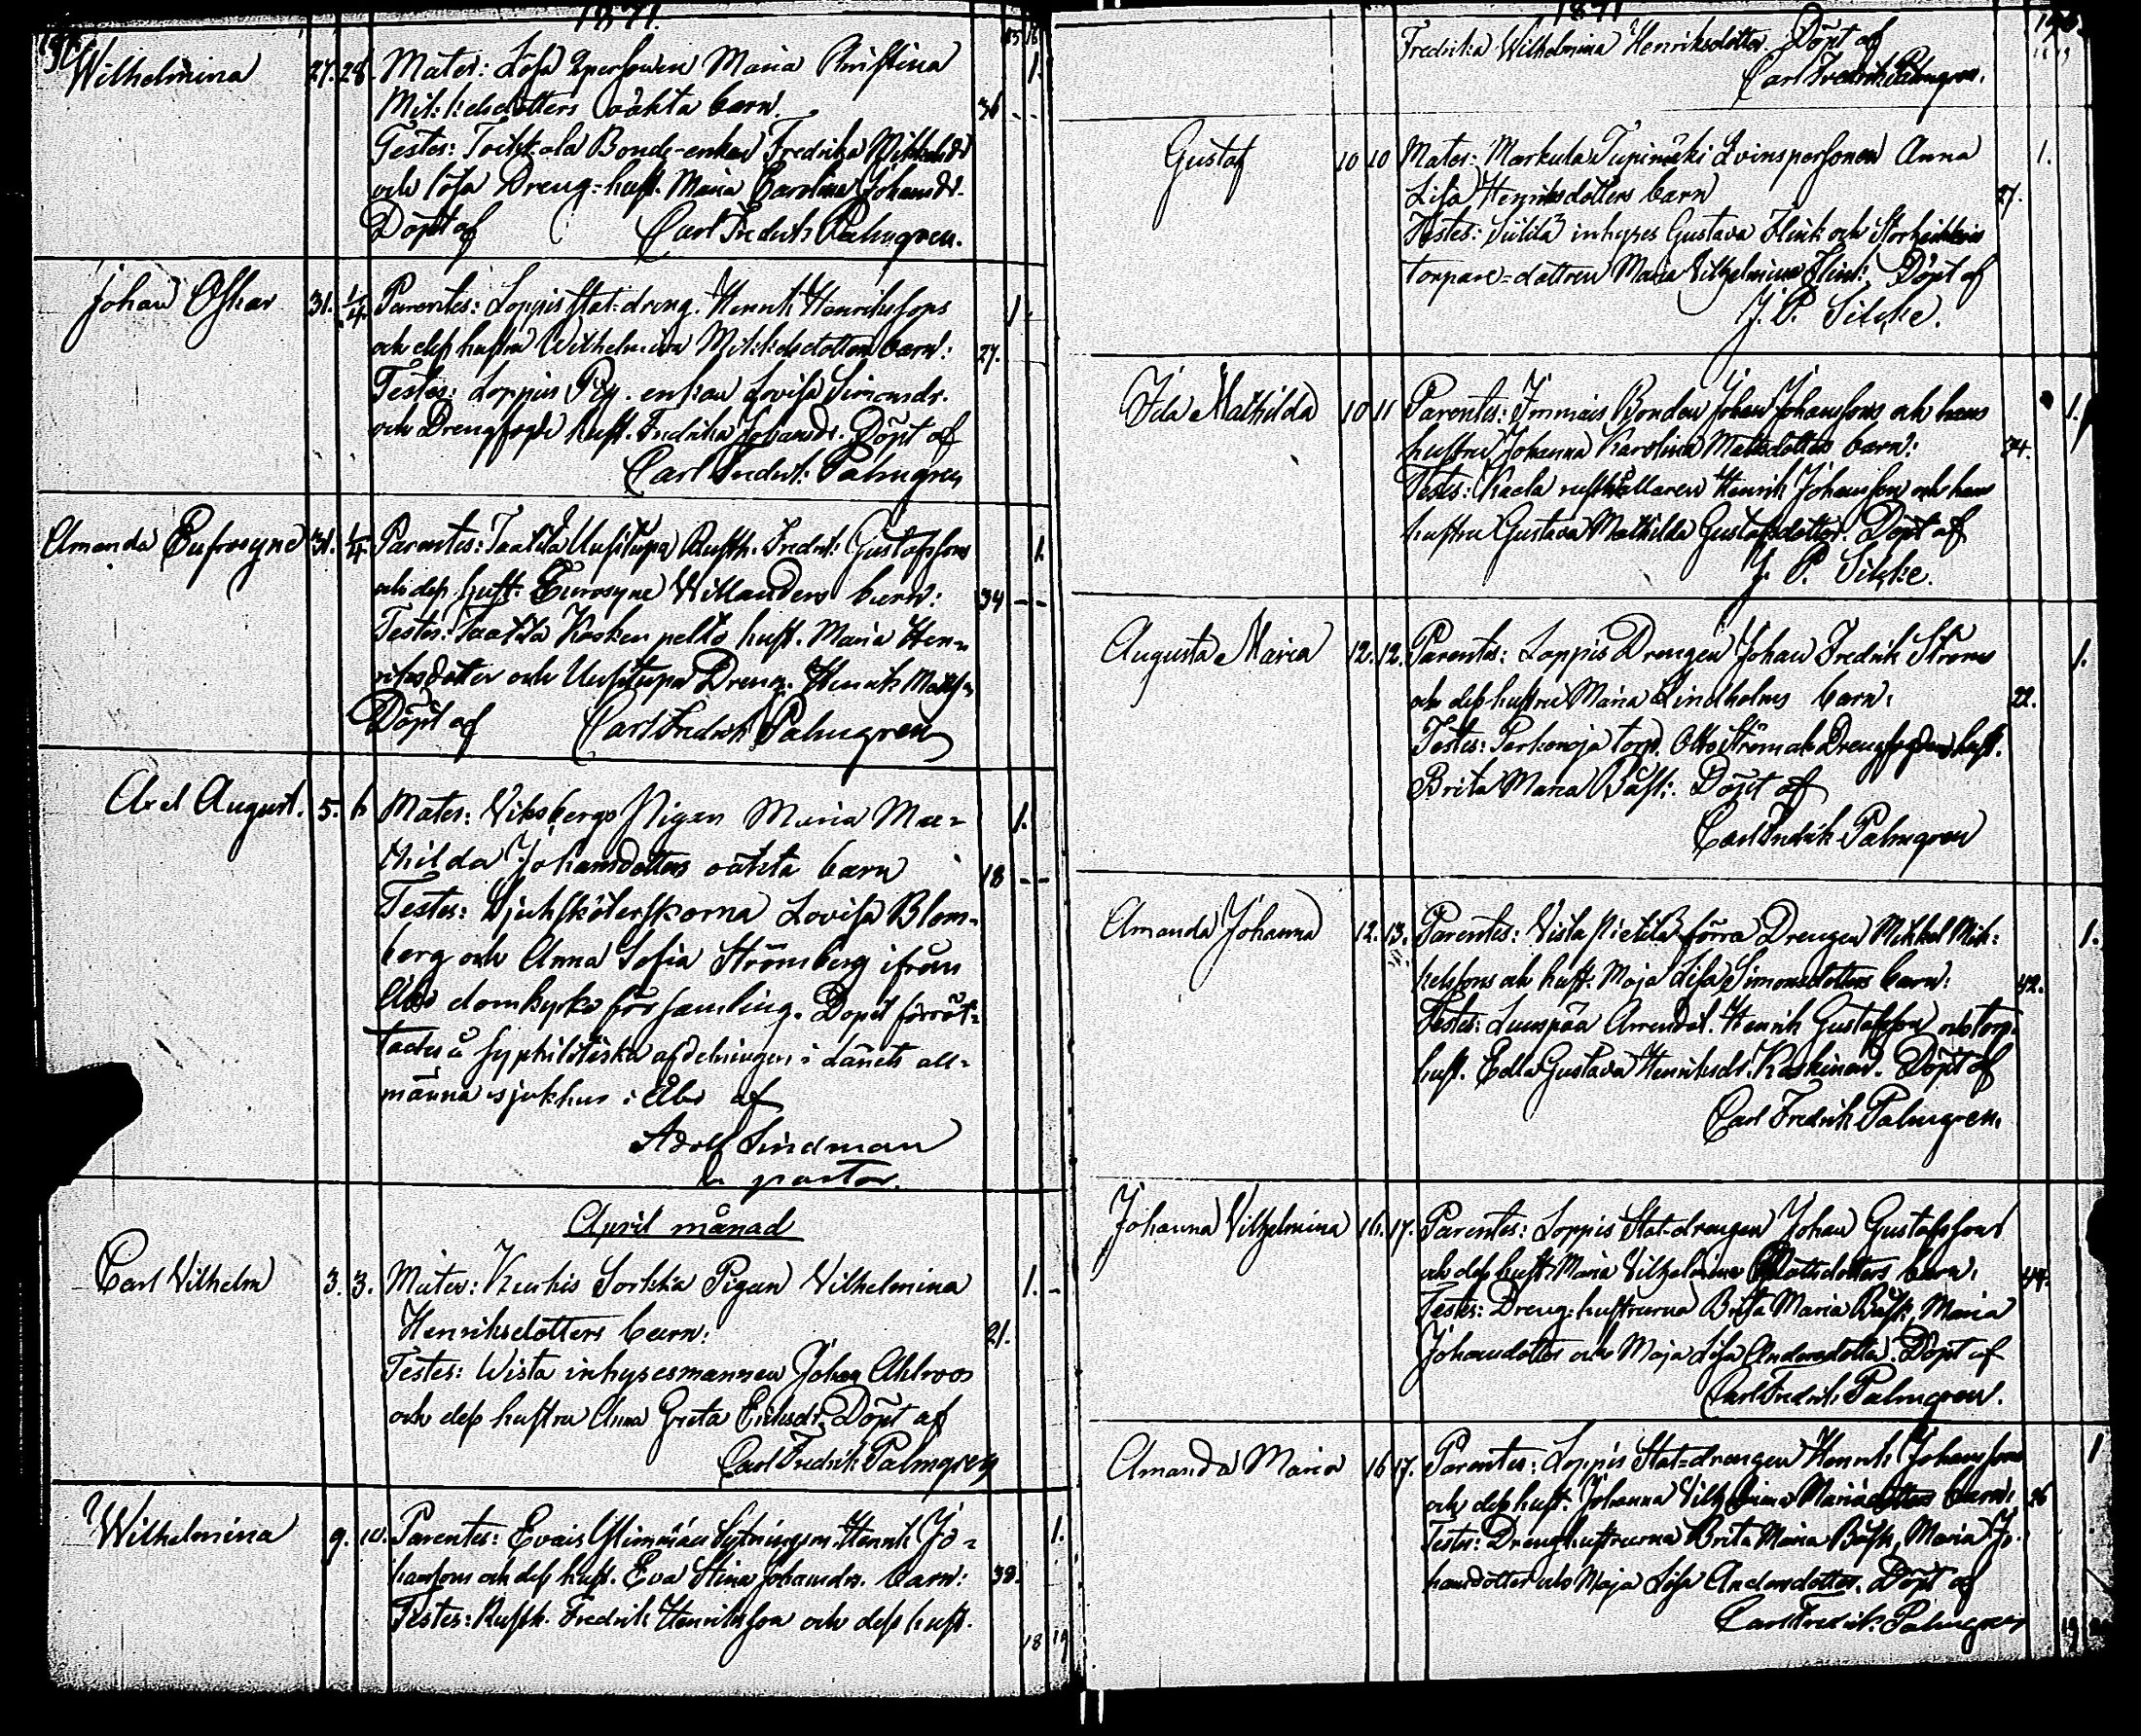 1871.
15 16
Wilhelmina 27. 28. Mater: Lösa Qvinspersonen Maria Christina 1.
Mik:kelsdotters oäkta barn. 36 - -
Testes: Bonde-enkan Fredrika Mikkelsdr
och lösa Dreng-hust. Maria Carolina Johansdr.
Döpt af Carl Fredrik Palmgren.
Johan Oskar 31. 1/4. Parentes: Loppis Stat-dreng. Henrik Henrikssons 1.
och dess hustru Wilhelmina Mikkelsdotters barn: 27.
Testes: Loppis Pig. enkan Lovisa Simonsdr.
och Drengfogde hust. Fredrika Johansdr. Döpt af
Carl Fredrik Palmgren
Amanda Eufrosyne 31. 1/4 Parentes: Taatila Uusitupa Rusth. Fredrik Gustafssons 1.
och dess hust. Eurosyne Willanders barn: 34 - -
Testes: Taatila Koskenpelto hust. Maria Hen-
riksdotter och Uusitupa Dreng. Henrik Matts:n
Döpt af Carl Fredrik Palmgren
Axel August. 5. 6 Mater: Viksbergs Pigan Maria Ma- 1.
thilda Johansdotters oäkta barn 18 - -
Testes: Sjuksköterskorna Lovisa Blom-
berg och Anna Sofia Strömberg ifrån
Åbo domkyrko församling. Dopet förrät-
tades å syphilitiska afdelningen i länets all-
männa sjukhus i Åbo af
Adolf Lindman
pastor.
April månad
Carl Vilhelm 3. 3. Mater: Kurkis Pigan Vilhelmina 1. -
Henriksdotters barn: 21.
Testes: Wista inhysesmannen Johan Ahlroos
och dess hustru Anna Greta Eriksdr. Döpt af
Carl Fredrik Palmgren
Wilhelmina 9. 10. Parentes: Evais Sytningsm. Henrik Jo- 1.
hanssons och dess hust. Eva Stina Johansdrs. barn: 38.
Testes: Rusth. Fredrik Henriksson och dess hust.
18 19
1871
Fredrika Wilhelmina Henriksdotter. Döpt af
Carl Fredrik Palmgren.
Gustaf 10 10 Mater: Markula Tupimäki Qvinspersonen Anna 1.
Lisa Henriksdotters barn 27.
Testes: inhyses Gustava Flink och
torpare-dottren Maria Vilhelmina Flink. Döpt af
J. P. Silcke.
Ida Mathilda 10 11 Parentes: Bonden Johan Johanssons och hans 1.
hustru Johanna Karolina Mattsdotters barn: 34.
Testes: Kaela rusthållaren Henrik Johansson och hans
hustru Gustava Mathilda Gustafsdotter. Döpt af
J. P. Silcke.
Augusta Maria 12. 12. Parentes: Loppis Drengen Johan Fredrik Ströms 1.
och dess hustru Maria Lindholms barn: 22.
Testes: Perkonoja torp. Otto Ström och Drengfogdens hust.
Brita Maria Bäck. Döpt af
Carl Fredrik Palmgren
Amanda Johanna 12. 13. Parentes: Vista Pietilä förra Drengen Mikkel Mik: 1.
kelssons och hust. Maja Lisa Simonsdotters barn: 42.
Testes: Luuspää Arrendat. Henrik Gustafsson och torp.
hust. Edla Gustava Henriksdr. Koskinen. Döpt af
Carl Fredrik Palmgren.
Johanna Vilhelmina 16. 17. Parentes: Loppis Stat-drengen Johan Gustafssons
och dess hust. Maria Vilhelmina Mattsdotters barn: 44.
Testes: Dreng-hustrurna Brita Maria Bäck, Maria
Johansdotter och Maja Lisa Andersdotter. Döpt af
Carl Fredrik Palmgren.
Amanda Maria 16 17. Parentes: Loppis Stat-drengen Henrik Johanssons 1
och dess hust. Johanna Vilhelmina barn: 26
Testes: Drenghustrurna Brita Maria Bäck, Maria Jo-
hansdotter och Maja Lisa Andersdotter. Döpt af
Carl Fredrik Palmgren
19